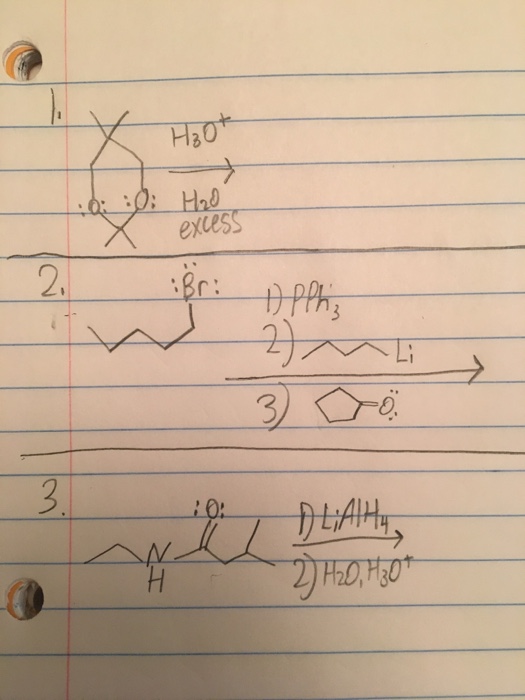 1.
H₃O⁺
:O: :O:
H₂O
excess
2.
:Br:
1) PPh₃
2) Li
3) O:
3.
:O:
N
H
1) LiAlH₄
2) H₂O, H₃O⁺